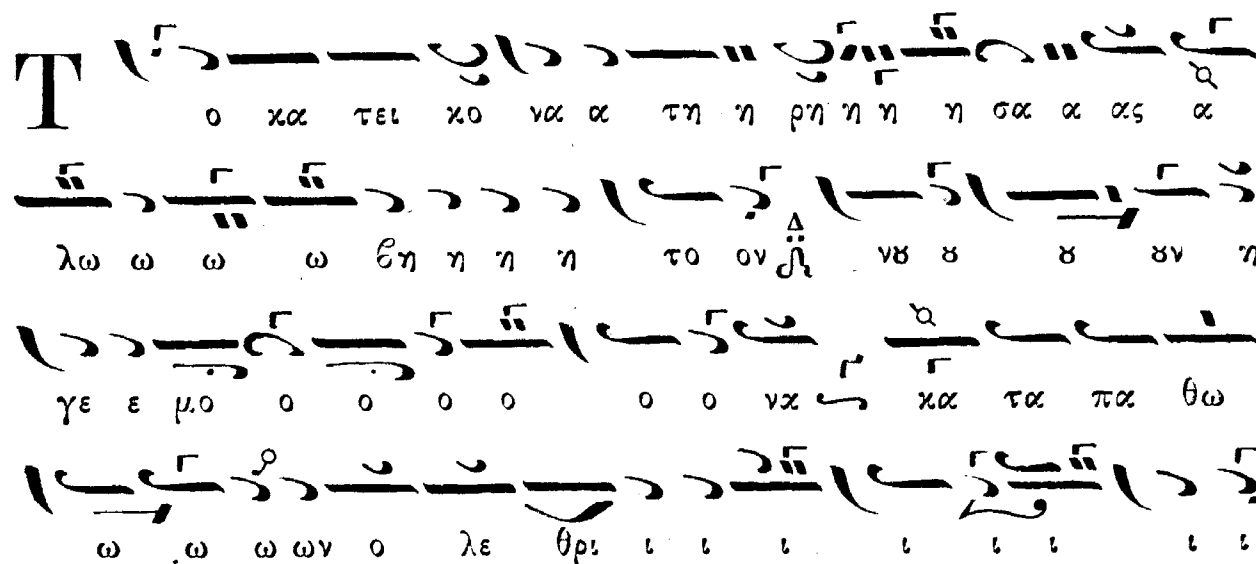 Τ ο κα τει κο να α τη η ρη η η η σα α ας α
λω ω ω ω ϐη η η η το ον Δ νȣ ȣ ȣ ȣν η
γε ε μο ο ο ο ο ο ο να κα τα πα θω
ω ω ω ων ο λε θρι ι ι ι ι ι ι ι ι